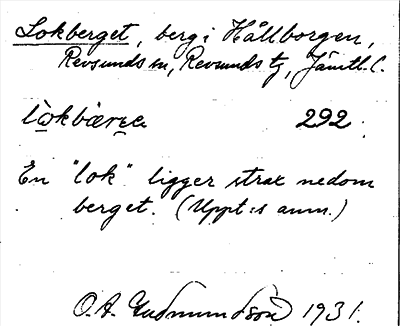 Lokberget, berg i Hållborgen,
Revsunds sn, Revsunds tg, Jämtl. L.
292.
En "lok" ligger strax nedom
berget. (Uppt:s anm.)
O. A. Gudmundsson 1931.